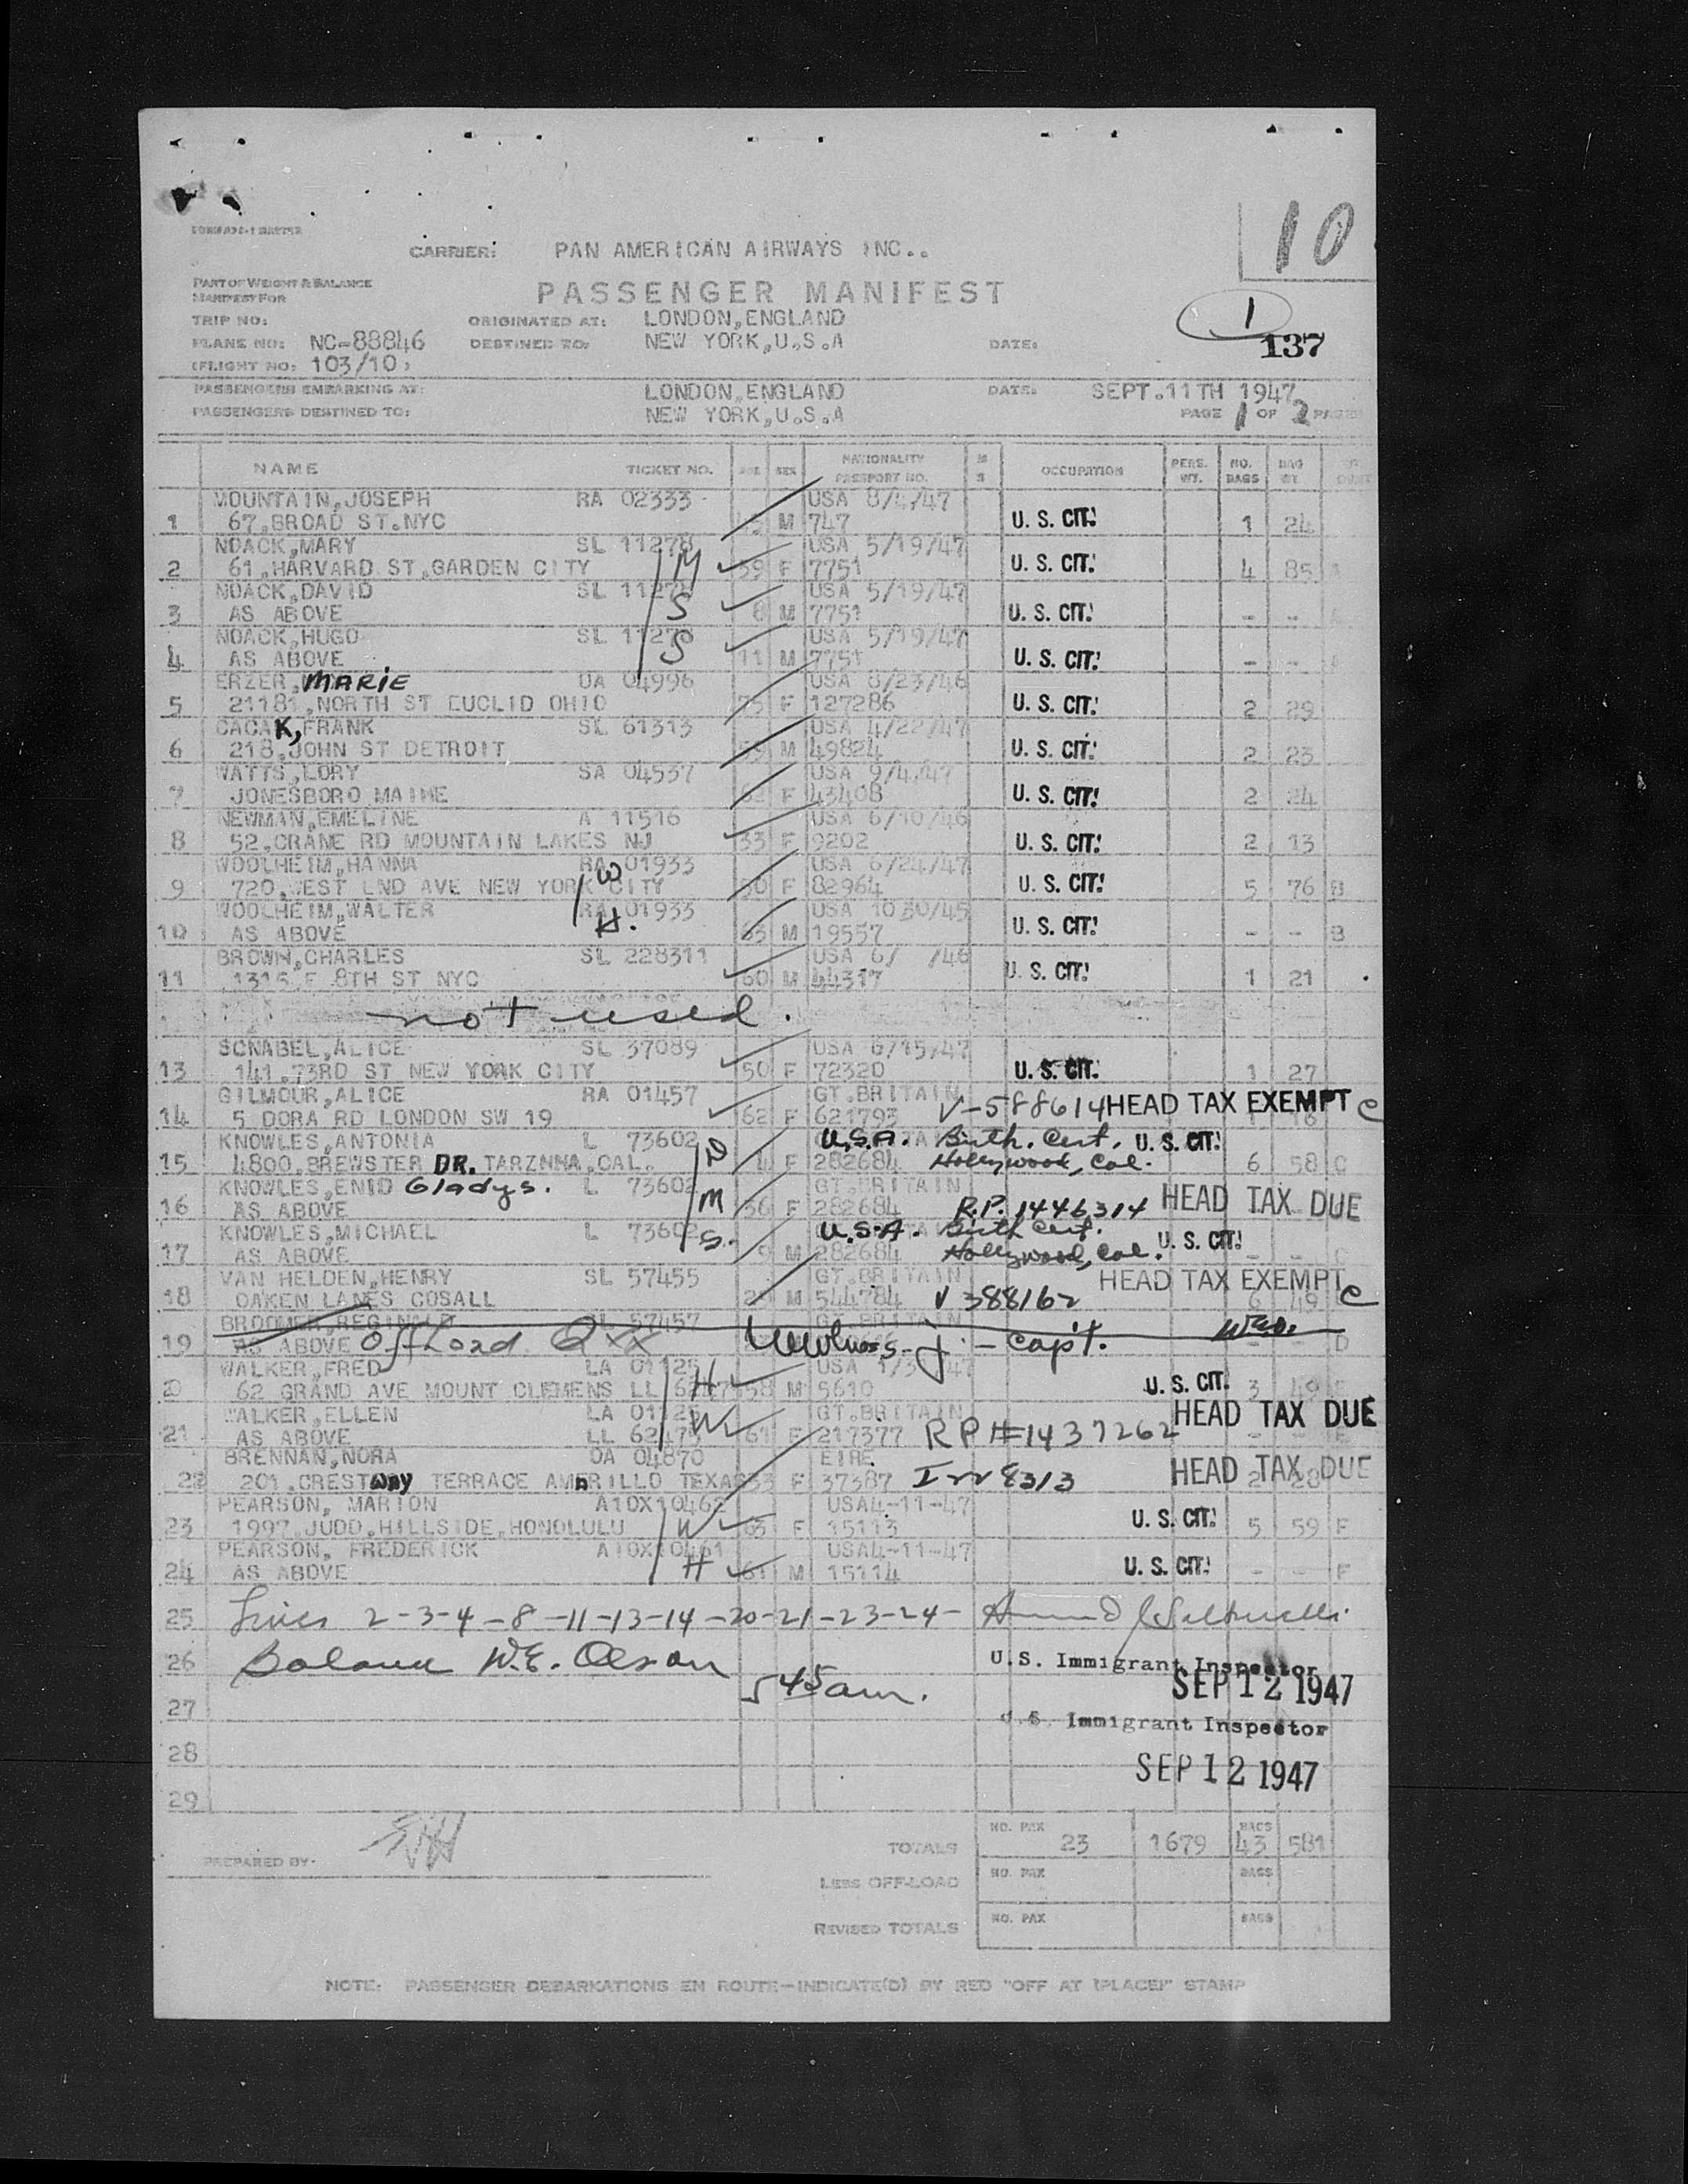 CARRIER: PAN AMERICAN AIRWAYS INC..
10
PART OF WEIGHT & BALANCE
MANIFEST FOR
PASSENGER MANIFEST
1
137
TRIP NO: ORIGINATED AT: LONDON,ENGLAND
PLANE NO: NC-88846 DESTINED TO: NEW YORK,U.S.A DATE:
(FLIGHT NO: 103/10)
PASSENGERS EMBARKING AT: LONDON,ENGLAND DATE: SEPT.11TH 1947
PASSENGERS DESTINED TO: NEW YORK,U.S.A PAGE 1 OF 2 PAGES
NAME TICKET NO. AGE SEX NATIONALITY PASSPORT NO. M S OCCUPATION PERS. WT. NO. BAGS BAG WT.
MOUNTAIN,JOSEPH RA 02333 USA 8/4/47
1 67,BROAD ST.NYC M 747 U. S. CIT. 1 24
NOACK,MARY SL 11278 M USA 5/19/47
2 61,HARVARD ST,GARDEN CITY 39 F 7751 U. S. CIT. 4 85 A
NOACK,DAVID SL 11278 S USA 5/19/47
3 AS ABOVE 8 M 7751 U. S. CIT. - -
NOACK,HUGO SL 11278 S USA 5/19/47
4 AS ABOVE 11 M 7751 U. S. CIT. - -
ERZER, MARIE OA 04996 USA 8/23/46
5 21181,NORTH ST EUCLID OHIO 75 F 127286 U. S. CIT. 2 29
CACAK, FRANK SL 61313 USA 4/22/47
6 218,JOHN ST DETROIT 59 M 49824 U. S. CIT. 2 23
WATTS,LORY SA 04537 USA 9/4/47
7 JONESBORO MAINE 62 F 43408 U. S. CIT. 2 24
NEWMAN,EMELINE A 11516 USA 6/10/46
8 52,CRANE RD MOUNTAIN LAKES NJ 33 F 9202 U. S. CIT. 2 13
WOOLHEIM,HANNA RA 01933 W USA 6/24/47
9 720,WEST END AVE NEW YORK CITY 50 F 82964 U. S. CIT. 5 76 B
WOOLHEIM,WALTER RA 01933 H. USA 10 30/45
10 AS ABOVE 63 M 19557 U. S. CIT. - - B
BROWN,CHARLES SL 228311 USA 6/ /46
11 1315 E 8TH ST NYC 60 M 44317 U. S. CIT. 1 21
not used.
SCNABEL,ALICE SL 37089 USA 6/15/47
13 141.73RD ST NEW YORK CITY 50 F 72320 U. S. CIT. 1 27
GILMOUR,ALICE RA 01457 GT.BRITAIN
14 5 DORA RD LONDON SW 19 62 F 621793 V-588614 HEAD TAX EXEMPT C 1 16
KNOWLES,ANTONIA L 73602 D U.S.A. Birth. Cert. U. S. CIT.
15 4800,BREWSTER DR. TARZNNA,CAL. 4 F 282684 Hollywood, Cal. 6 58 C
KNOWLES,ENID Gladys. L 73602 M GT.BRITAIN
16 AS ABOVE 36 F 282684 R.P. 1446314 HEAD TAX DUE
KNOWLES,MICHAEL L 73602 S. U.S.A. Birth Cert.
17 AS ABOVE 9 M 282684 Hollywood, Cal. U. S. CIT. - - C
VAN HELDEN,HENRY SL 57455 GT.BRITAIN HEAD TAX EXEMPT C
18 OAKEN LANES COSALL M 544784 V 388162 6 49
BROOMER,REGINALD SL 57457 GT.BRITAIN
19 AS ABOVE OffLoad - Capt. - - D
WALKER,FRED LA 01125 H USA
20 62 GRAND AVE MOUNT CLEMENS LL 58 M 5610 U. S. CIT. 3 49 E
WALKER,ELLEN LA 01125 W GT.BRITAIN HEAD TAX DUE
21 AS ABOVE LL 62475 61 F 217377 RP#1437262 - - E
BRENNAN,NORA OA 04870 EIRE
22 201,CRESTWAY TERRACE AMARILLO TEXAS 33 F 37387 8313 HEAD TAX DUE 2 28
PEARSON, MARION A10X10462 USA4-11-47
23 1997,JUDD,HILLSIDE,HONOLULU W 63 F 15113 U. S. CIT. 5 59 F
PEARSON, FREDERICK A10X10461 USA4-11-47
24 AS ABOVE H 61 M 15114 U. S. CIT. - - F
25 Lines 2-3-4-8-11-13-14-20-21-23-24-
26 Balance W.E. Olson U.S. Immigrant Inspector
5 45 am. SEP 12 1947
27 U.S. Immigrant Inspector
28 SEP 12 1947
29
PREPARED BY- TOTALS NO. PAX 23 1679 BAGS 43 581
LESS OFF-LOAD NO. PAX BAGS
REVISED TOTALS NO. PAX BAGS
NOTE: PASSENGER DEBARKATIONS EN ROUTE—INDICATE(D) BY RED "OFF AT (PLACE)" STAMP